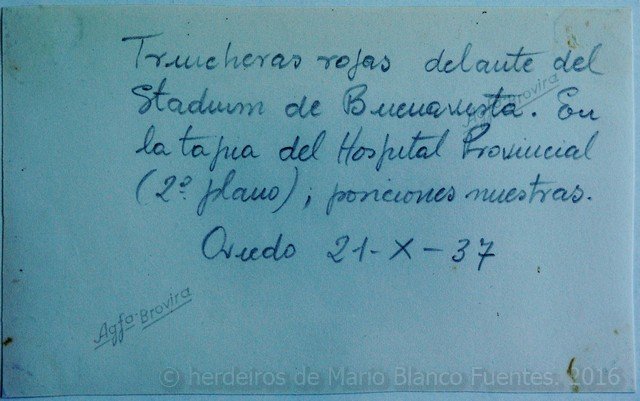 Trincheras rojas delante del
Stadium de Buenavista. En
la tapia del Hospital Provincial
(2º plano); posiciones nuestras.
Oviedo 21-X-37
Agfa-Brovira
Agfa-Brovira
© herdeiros de Mario Blanco Fuentes. 2016